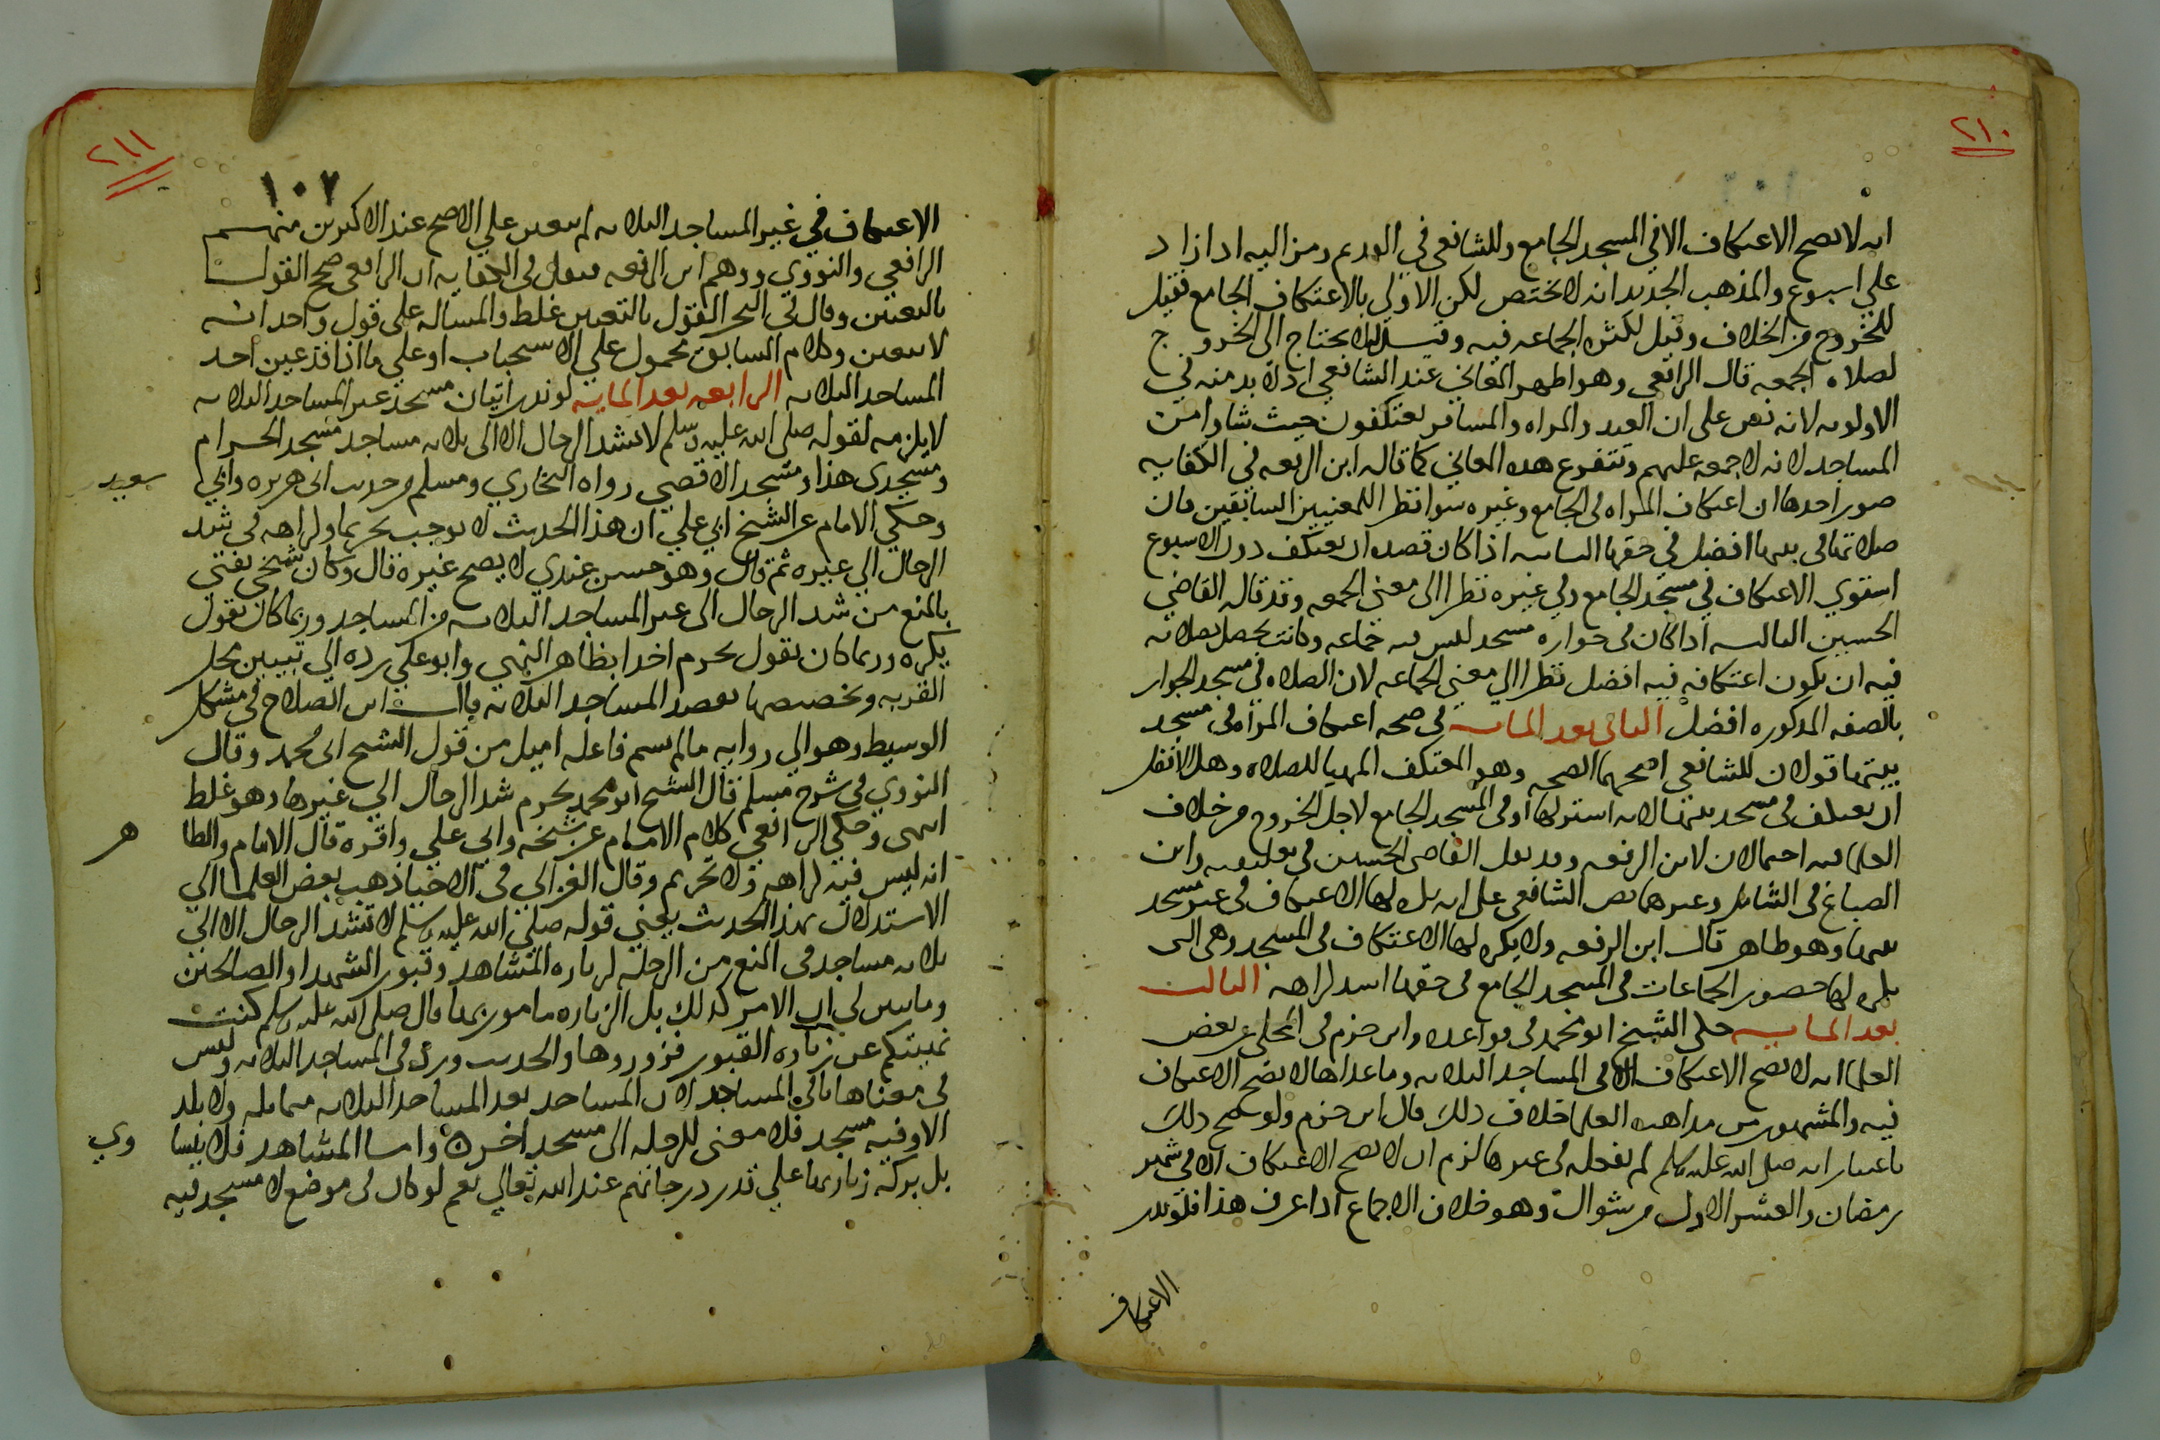 ٢١٠
انه لا يصح الاعتكاف الا في المسجد الجامع وللشافعي في القديم رمز اليه اذا زاد
علي اسبوع والمذهب الجديد انه لا يختص لكن الاولي بالاعتكاف الجامع فقيل
للخروج من الخلاف وقيل لكثرة الجماعه فيه وقيل ليلا يحتاج الى الخروج
لصلاه الجمعه قال الرافعي وهو اظهر المعاني عند الشافعي اذ لا بد منه في
الاولويه لانه نص علي ان العبد والمراه والمسافر يعتكفون حيث شاوا من
المساجد لانه لا جمعه عليهم وتتفرع هذه المعاني كما قاله ابن الرفعه في الكفايه
صور احدها ان اعتكاف المراه في الجامع وغيره سوا نظرا للمعنيين السابقين فان
صلاتها في بيتها افضل في حقها الثانيه اذا كان قصده ان يعتكف دون الاسبوع
استوي الاعتكاف في مسجد الجامع وفي غيره نظرا الى معني الجمعه وقد قاله القاضي
الحسين الثالثه اذا كان في جواره مسجد ليس فيه جماعه وكانت تحصل بصلاته
فيه ان يكون اعتكافه فيه افضل نظرا الي معني الجماعه لان الصلاه في مسجد الجوار
بالصفه المذكوره افضل الثاني بعد المايه في صحه اعتكاف المرأه في مسجد
بيتها قولان للشافعي اصحهما الصحه وهو المعتكف المهيا للصلاه وهل الافضل
ان يعتكف في مسجد بيتها لانه استر لها او في المسجد الجامع لاجل الخروج من خلاف
العلما فيه احتمالان لابن الرفعه وقد نقل القاضي الحسين في تعليقه وابن
الصباغ في الشامل وغيرهما نص الشافعي علي انه يكره لها الاعتكاف في غير مسجد
بيتها وهو ظاهر قال ابن الرفعه ولا يكره لها الاعتكاف في المسجد وهي التي
يكره لها حضور الجماعات في المسجد الجامع في حقها اشد كراهه الثالث
بعد المايه حكى الشيخ ابو محمد في قواعده وابن حزم في المحلى عن بعض
العلما انه لا يصح الاعتكاف الا في المساجد الثلاثه وما عداها لا يصح الاعتكاف
فيه والمشهور من مذاهب العلما خلاف ذلك قال ابن حزم ولو صح ذلك
باعتبار انه صلى الله عليه وسلم لم يفعله في غيرها لزم ان لا يصح الاعتكاف الا في شهر
رمضان والعشر الاول من شوال وهو خلاف الاجماع اذا عرف هذا فلو نذر
الاعتكاف
٢١١
١٠٧
الاعتكاف في غير المساجد الثلاثه لم يتعين علي الاصح عند الاكثرين منهم
الرافعي والنووي ووهم ابن الرفعه فنقل في الكفايه ان الرافعي صحح القول
بالتعيين وقال في البحر القول بالتعيين غلط والمساله على قول واحد انه
لا يتعين وكلام السابق محمول علي الاستحباب او علي ما اذا قد عين احد
المساجد الثلاثه الرابعه بعد المايه لو نذر اتيان مسجد غير المساجد الثلاثه
لا يلزمه لقوله صلى الله عليه وسلم لا تشد الرحال الا الى ثلاثه مساجد مسجد الحرام
ومسجدي هذا ومسجد الاقصي رواه البخاري ومسلم من حديث ابي هريره وابي
سعيد
وحكي الامام عن الشيخ ابي علي ان هذا الحديث لا يوجب تحريما ولا كراهه في شد
الرحال الي غيره ثم قال وهو حسن عندي لا يصح غيره قال وكان شيخي يفتي
بالمنع من شد الرحال الى غير المساجد الثلاثه من المساجد وربما كان يقول
يكره وربما كان يقول يحرم اخذا بظاهر النهي وابو علي رده الي تبيين محل
القربه وتخصيصها بقصد المساجد الثلاثه قال ابن الصلاح في مشكل
الوسيط وهو الي روايه ما لم يسم فاعله اميل من قول الشيخ ابي محمد وقال
النووي في شرح مسلم قال الشيخ ابو محمد يحرم شد الرحال الي غيرها وهو غلط
انتهى وحكي الرافعي كلام الامام عن شيخه وابي علي واقره قال الامام والظا
هر
انه ليس فيه كراهه ولا تحريم وقال الغزالي في الاحيا ذهب بعض العلما الي
الاستدلال بهذا الحديث يعني قوله صلي الله عليه وسلم لا تشد الرحال الا الي
ثلاثه مساجد في المنع من الرحله لزياره المشاهد وقبور الشهدا والصالحين
وما تبين لي ان الامر كذلك بل الزياره مامور بها قال صلى الله عليه وسلم كنت
نهيتكم عن زياره القبور فزوروها والحديث ورد في المساجد الثلاثه وليس
في معناها باقي المساجد لان المساجد بعد المساجد الثلاثه متماثله ولا بلد
الا وفيه مسجد فلا معنى للرحله الى مسجد اخر واما المشاهد فلا يتسا
وي
بل بركة زيارتها علي قدر درجاتهم عند الله تعالي نعم لو كان في موضع لا مسجد فيه